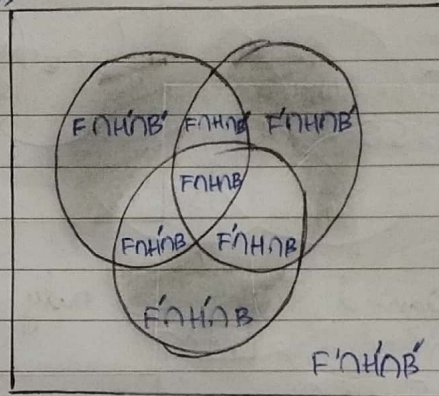 F∩H'∩B' F∩H∩B' F'∩H∩B'
F∩H∩B
F∩H'∩B F'∩H∩B
F'∩H'∩B
F'∩H'∩B'